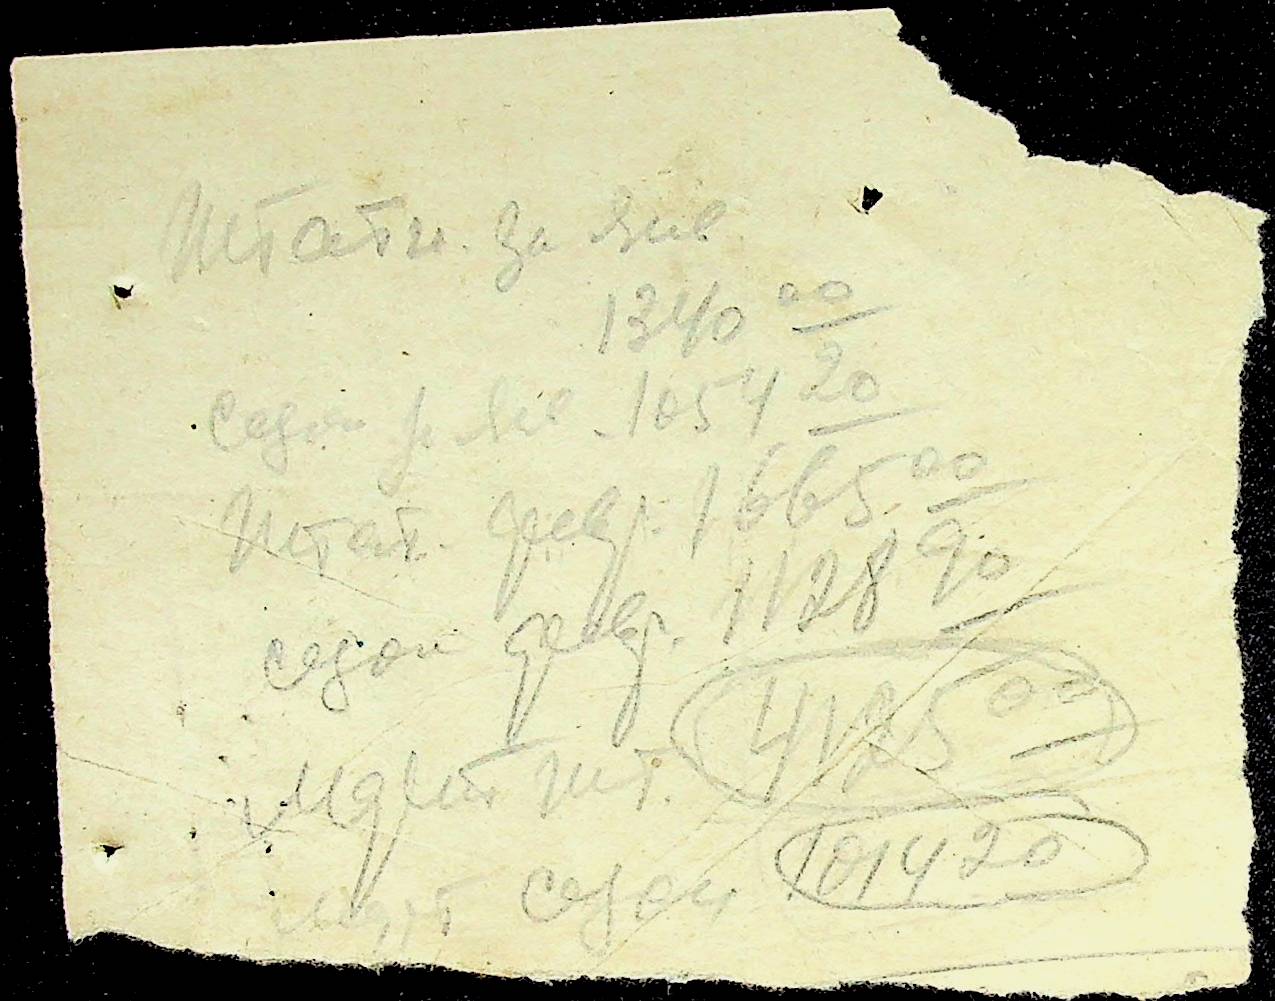 Штатн. за янв
1340 00
сезон за янв. 1054 20
штат. февр. 1665 00
сезон февр. 1128 90
Март шт. 4125 00
Март сезон 1014 20